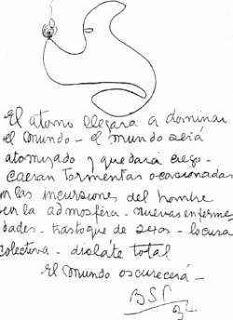 El atomo llegará a dominar
el mundo - el mundo será
atomizado y quedará ciego -
caeran tormentas ocasionadas
en las incursiones del hombre
por la admosféra - nuevas enferme
dades - trastoque de sexos - locura
colectiva - dislate total
El mundo oscurecerá -
BSP